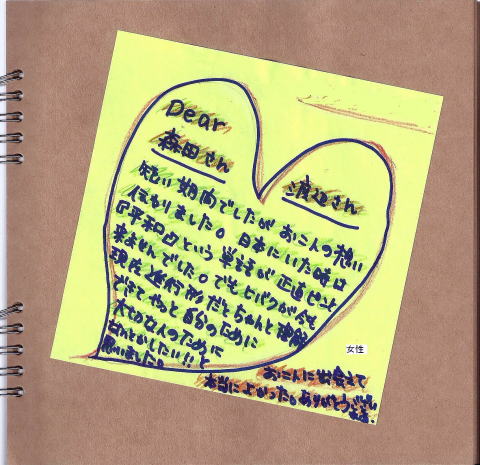 Dear
森田さん
渡辺さん
短い期間でしたが お二人の想い
伝わりました。日本にいた時は
『平和』という単語が正直ピンと
来ませんでした。でもヒバクが今も
現在進行形だとちゃんと理解
できて、やっと自分のために
大切な人のために
なんとかしたい!!と
思いました。
女性
お二人に出会えて
本当によかった。ありがとうございます。